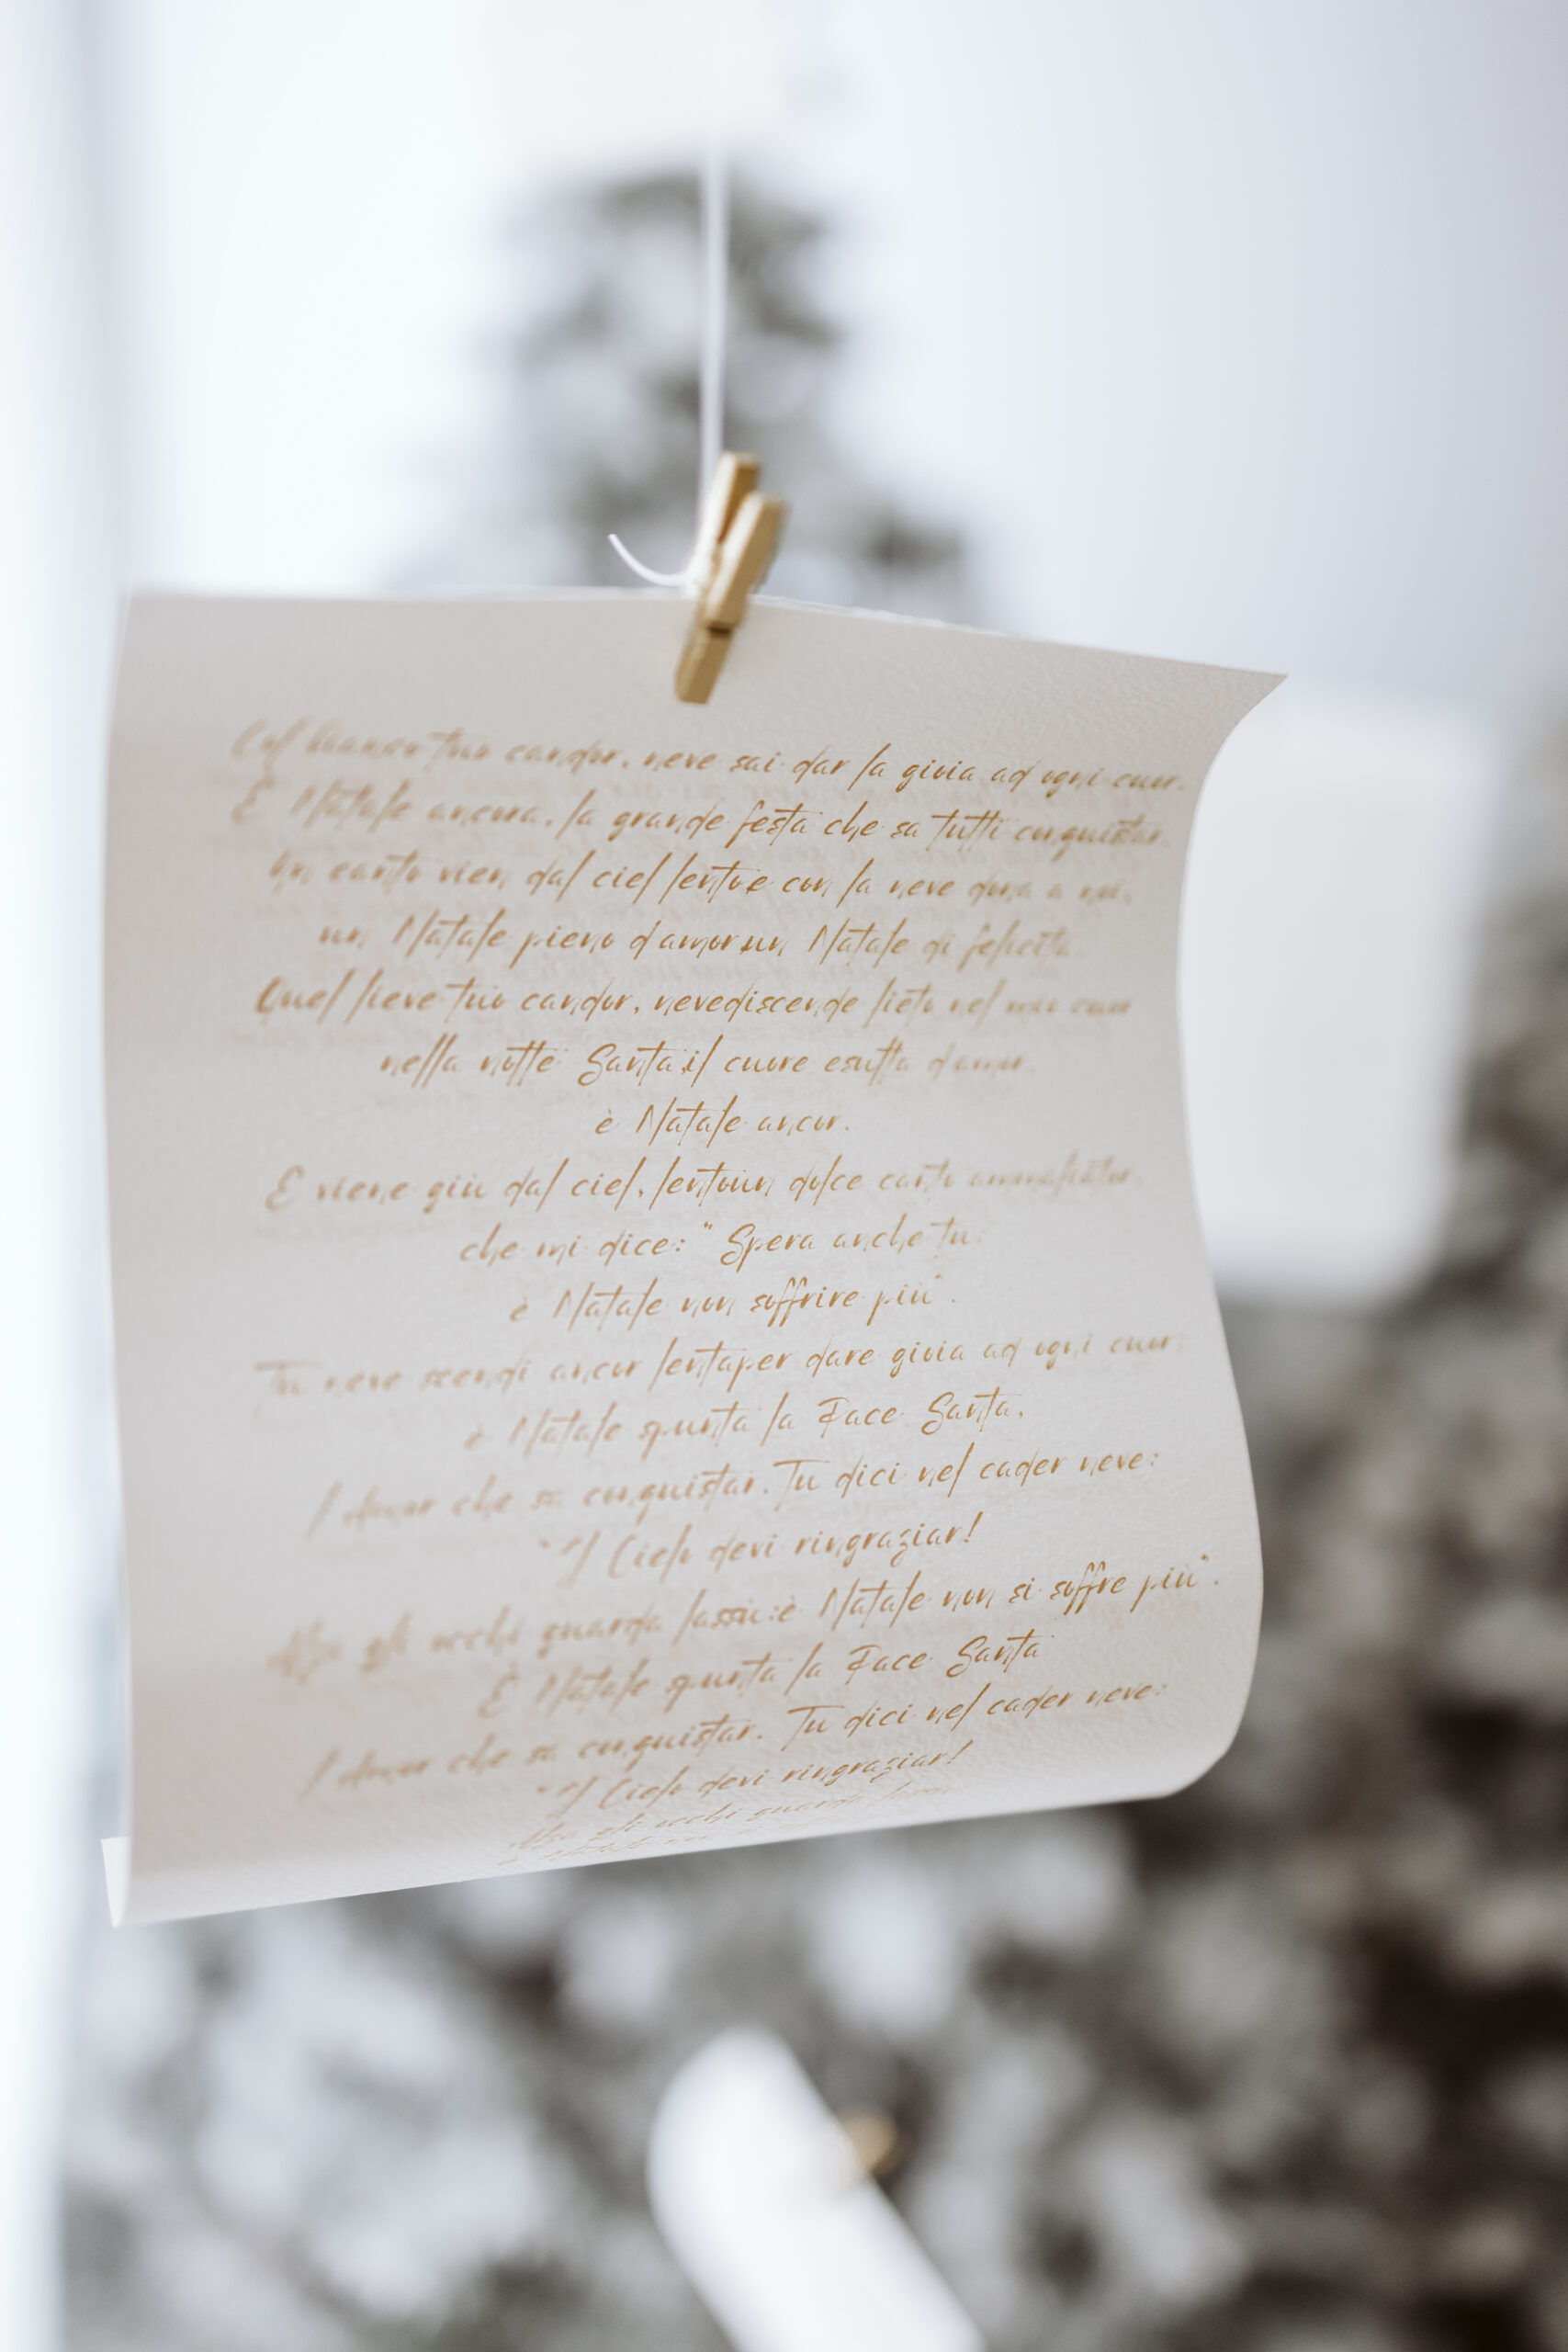 Col bianco tuo candor, neve sai dar la gioia ad ogni cuor.
È Natale ancora, la grande festa che sa tutti conquistar.
Un canto vien dal ciel lento,e con la neve dona a noi,
un Natale pieno d'amor,un Natale di felicità.
Quel lieve tuo candor, nevediscende lieto nel mio cuor
nella notte Santa,il cuore esulta d'amor.
è Natale ancor.
E viene giù dal ciel, lentoun dolce canto ammaliator.
che mi dice: " Spera anche tu:
è Natale non soffrire più".
Tu neve scendi ancor lentaper dare gioia ad ogni cuor:
è Natale spunta la Pace Santa,
l'Amor che sa conquistar. Tu dici nel cader neve:
"Il Cielo devi ringraziar!
Alza gli occhi guarda lassù:è Natale non si soffre più".
È Natale spunta la Pace Santa
l'Amor che sa conquistar. Tu dici nel cader neve:
"Il Cielo devi ringraziar!
Alza gli occhi guarda